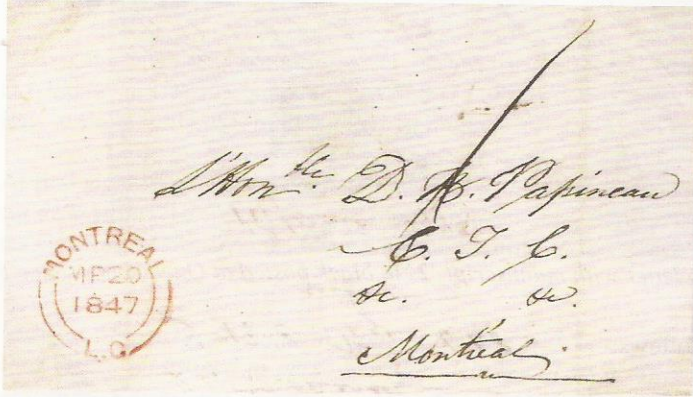 L'Honble. D. B. Papineau
C. T. C.
&c. &c.
Montréal
MONTREAL
MR 20
1847
L.C.